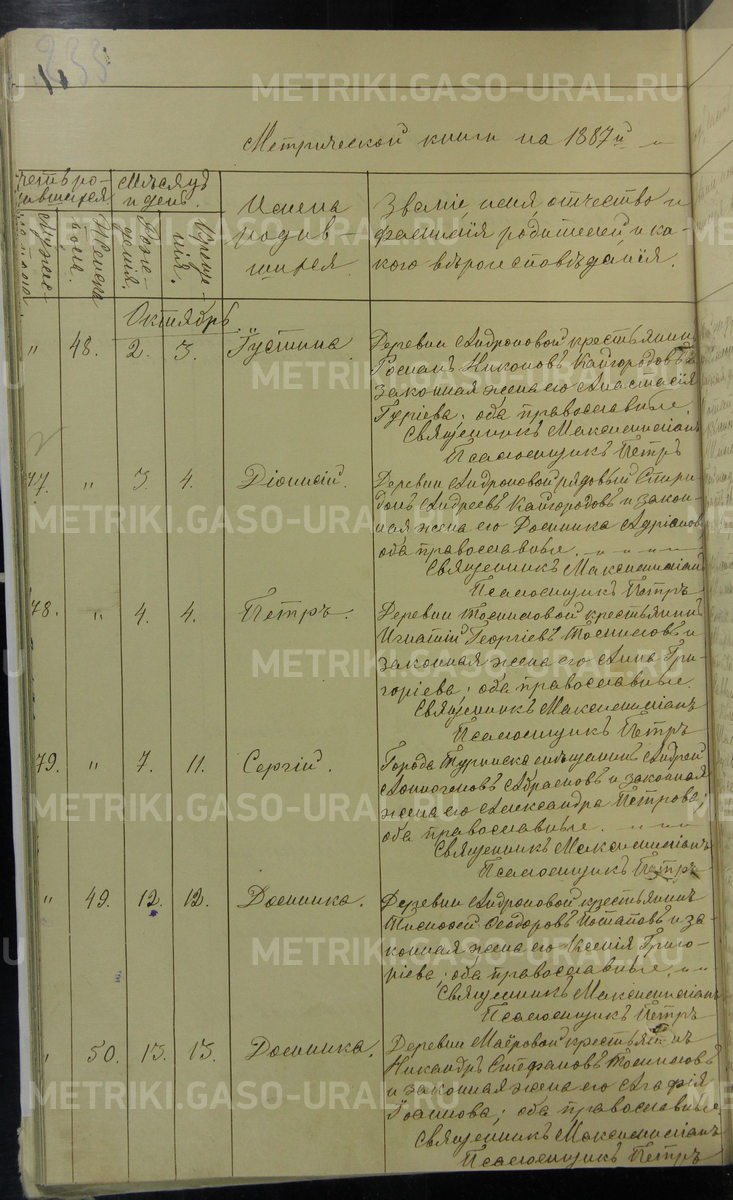 235
Метрической книги на 1887й
Счетъ ро-
дившихся
Мужес-
каго пола.
Женска
пола.
Мѣсяцъ
и день.
Рож-
денія.
Креще-
нія.
Имена
родив-
шихся
Званіе имя, отчество и
фамилія родителей, и ка-
кого вѣроисповѣданія.
Октябрь
" 48. 2. 3. Іустина. Деревни Андроновой крестьянинъ
Романъ Никоновъ Кайгородовъ и
законная жена его Анастасія
Гуріева, оба православные.
Священникъ Максимиліанъ
Псаломщикъ Петръ
77. " 3. 4. Діонисій. Деревни Андроновой рядовый Спири-
донъ Андреевъ Кайгородовъ и закон-
ная жена его Домника Адріанов
оба православные.
Священникъ Максимиліанъ
Псаломщикъ Петръ
78. " 4. 4. Петръ. Деревни Томиловой крестьянинъ
Игнатій Георгіевъ Томиловъ и
законная жена его Анна Гри-
горіева; оба православные.
Священникъ Максимиліанъ
Псаломщикъ Петръ
79. " 7. 11. Сергій. Города Туринска мѣщанинъ Андрей
Абрамовъ и законная
жена его Александра Петрова;
оба православные.
Священникъ Максимиліанъ
Псаломщикъ Петръ
" 49. 12. 12. Домника. Деревни Андроновой крестьянинъ
Тимофей Ѳеодоровъ Потаповъ и за-
конная жена его Ксенія Григо-
ріева; оба православные.
Священникъ Максимиліанъ
Псаломщикъ Петръ
" 50. 13. 13. Домника. Деревни Маёровой крестьянинъ
Никандръ Стефановъ Томиловъ
и законная жена его Агафія
Іоаннова; оба православные
Священникъ Максимиліанъ
Псаломщикъ Петръ
METRIKI.GASO-URAL.RU